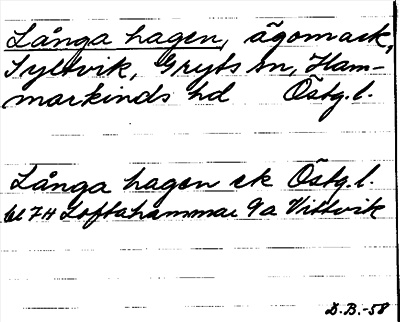 Långa hagen, ägomark,
Syltvik, Gryts sn, Ham-
markinds hd Östg.l.
Långa hagen ek Östg.l.
bl 7H Loftahammar 9a Vittvik
D.B.-58